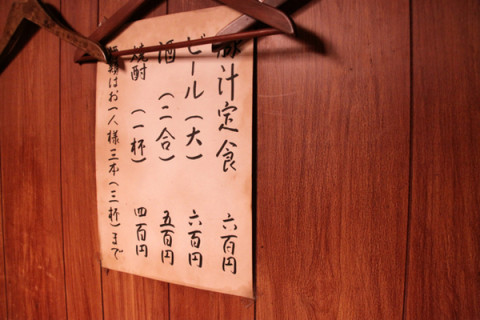 豚汁定食 六百円
ビール(大) 六百円
酒(二合) 五百円
焼酎(一杯) 四百円
酒類はお一人様三本(三杯)まで